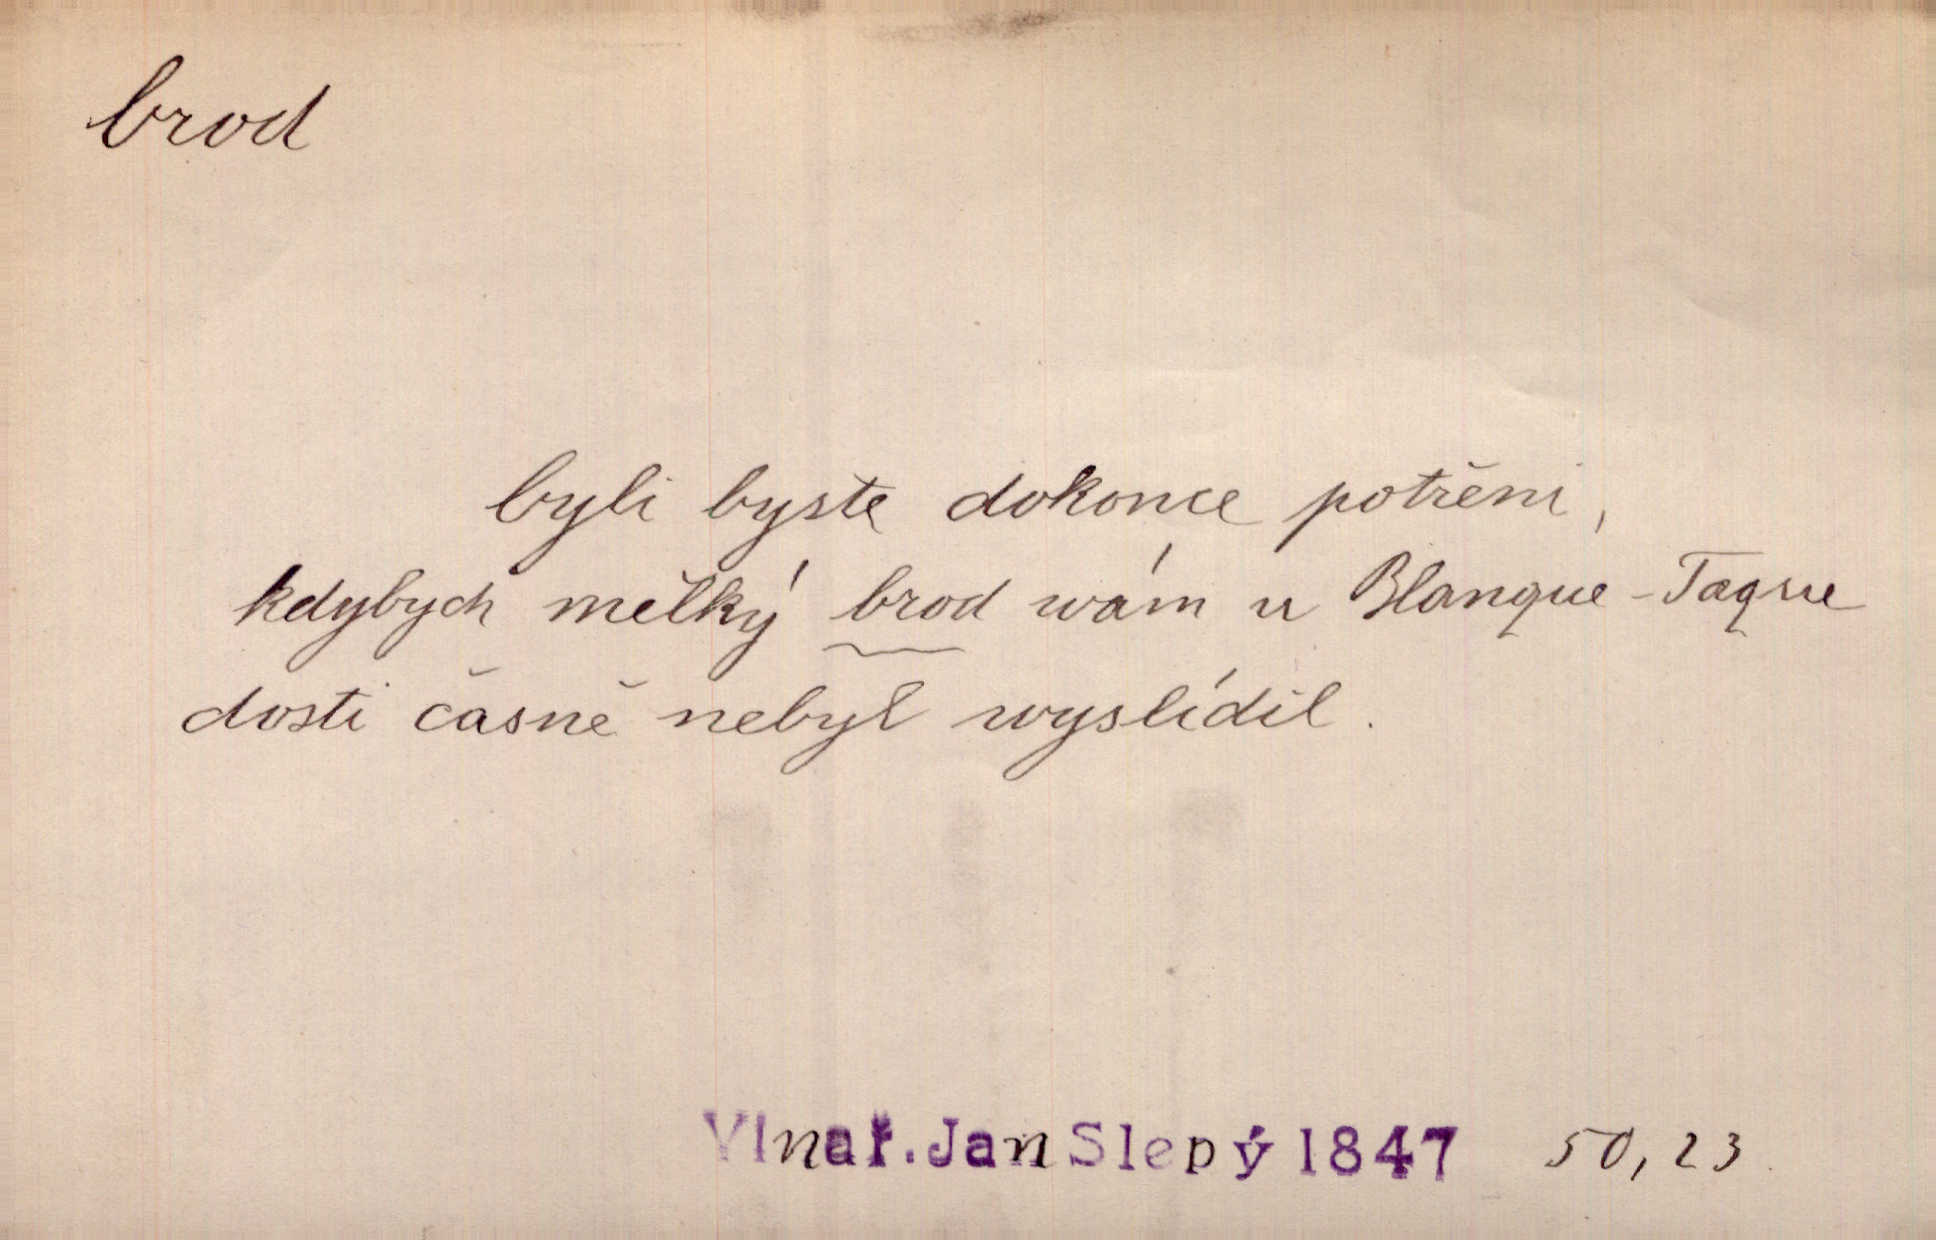 brod
byli byste dokonce potřeni,
kdybych mělký brod wám u Blanque-Taque
dosti časně nebyl wyslídil.
Vlnař. Jan Slepý 1847 50,23